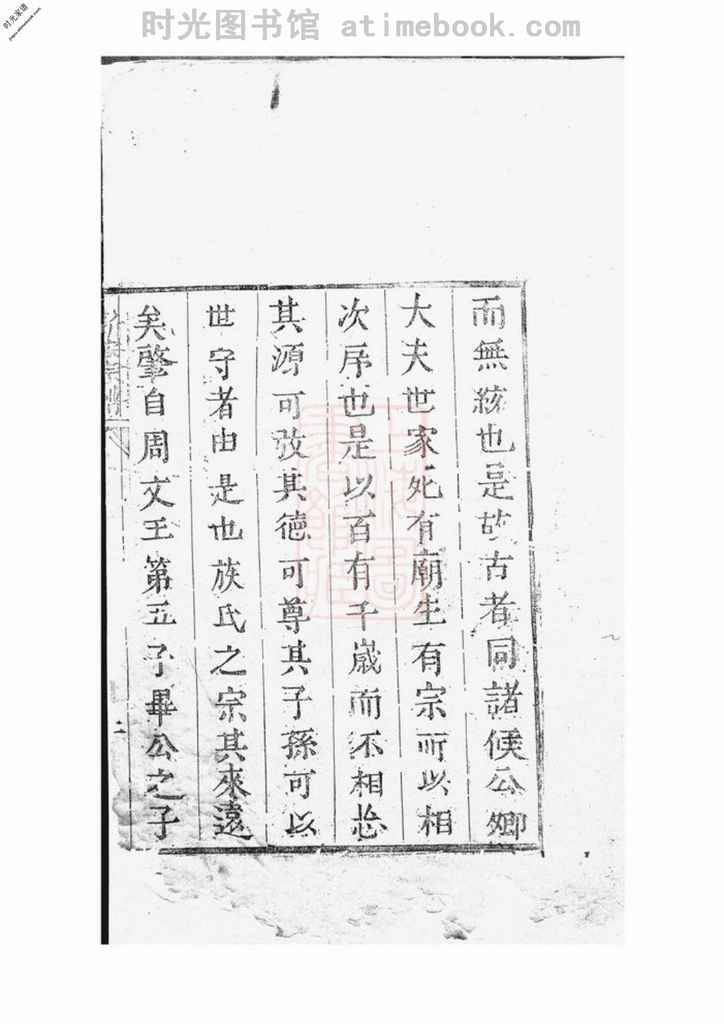 时光图书馆 atimebook.com
时光家谱
而無紊也是故古者同諸候公卿
大夫世家死有廟生有宗所以相
次序也是以百有千歲而不相忘
其源可攷其德可尊其子孫可以
世守者由是也族氏之宗其來遠
矣肇自周文王第五子畢公之子
二